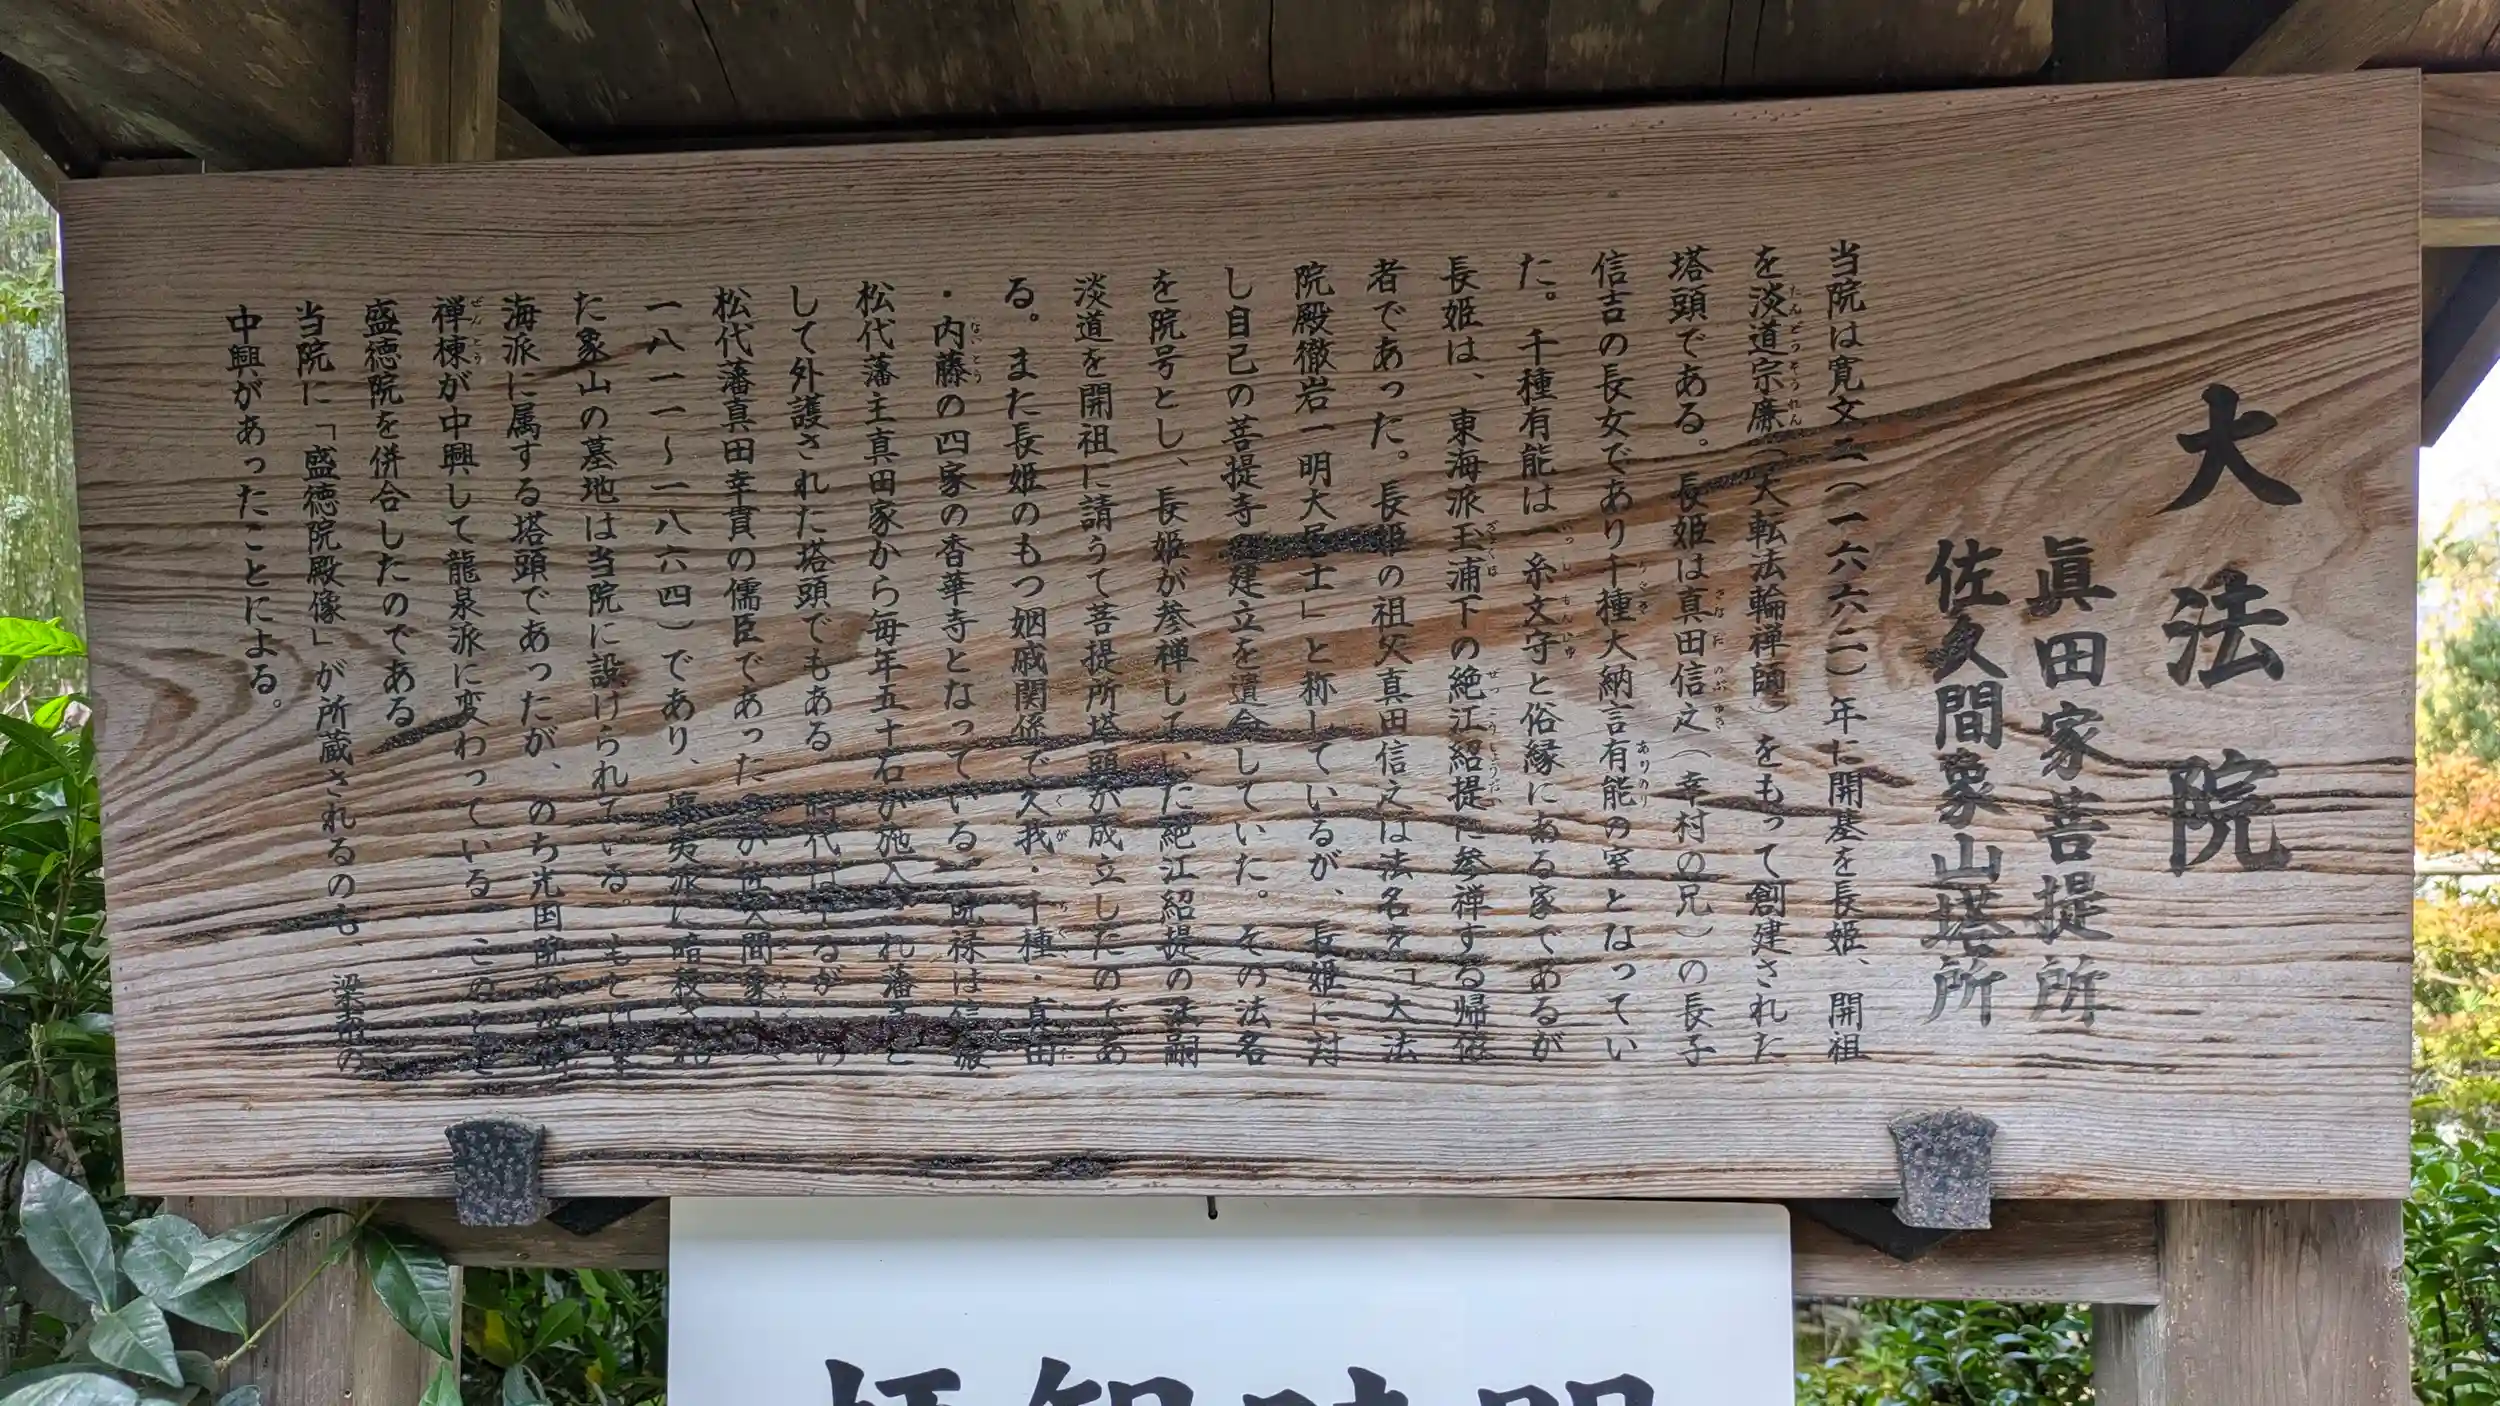 大法院
眞田家菩提所
佐久間象山塔所
当院は寛文二（一六六二）年に開基を長姫、開祖
を淡道宗廉（大転法輪禅師）をもって創建された
塔頭である。長姫は真田信之（幸村の兄）の長子
信吉の長女であり千種大納言有能の室となってい
た。千種有能は一糸文守と俗縁にある家であるが
長姫は、東海派玉浦下の絶江紹提に参禅する帰依
者であった。長姫の祖父真田信之は法名を「大法
院殿徹岩一明大居士」と称しているが、長姫に対
し自己の菩提寺の建立を遺命していた。その法名
を院号とし、長姫が参禅していた絶江紹提の法嗣
淡道を開祖に請うて菩提所塔頭が成立したのであ
る。また長姫のもつ姻戚関係で久我・千種・真田
・内藤の四家の香華寺となっている 院禄は
松代藩主真田家から毎年五十石が施入 れ藩 と
して外護された塔頭でもある 時代は るが の
松代藩真田幸貫の儒臣であった 久間象
一八一一〜一八六四）であり、攘夷派に暗殺され
た象山の墓地は当院に設けられている。もと
海派に属する塔頭であったが、のち光国院の
禅棟が中興して龍泉派に変わっている こののち
盛徳院を併合したのである
当院に「盛徳院殿像」が所蔵されるのも、梁南の
中興があったことによる。